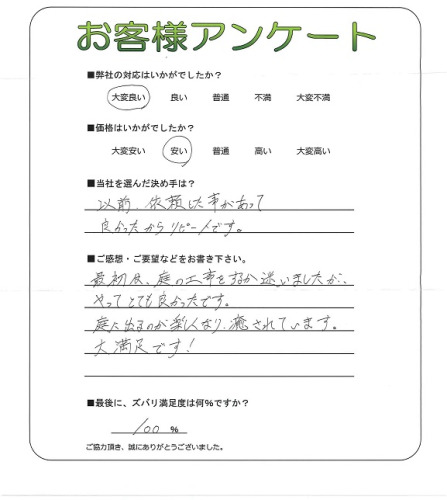 お客様アンケート
■弊社の対応はいかがでしたか？
大変良い 良い 普通 不満 大変不満
■価格はいかがでしたか？
大変安い 安い 普通 高い 大変高い
■当社を選んだ決め手は？
以前、依頼した事があって
良かったからリピートです。
■ご感想・ご要望などをお書き下さい。
最初は、庭の工事をするか迷いましたが、
やってとても良かったです。
庭に出るのが楽しくなり、癒されています。
大満足です！
■最後に、ズバリ満足度は何％ですか？
100 ％
ご協力頂き、誠にありがとうございました。